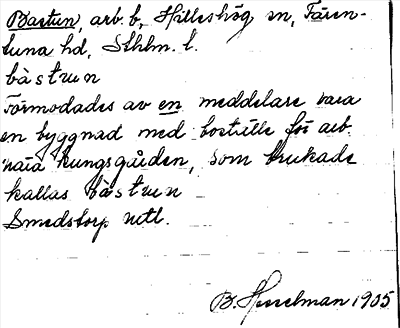 Bastun, arb. b, Hilleshög sn, Fären-
tuna hd, Sthlm. l.
båstun
Förmodades av en meddelare vara
en byggnad med boställe för arb.
nära kungsgården, som brukade
kallas båstun
Smedstorp utl.
B. Hesselman 1905